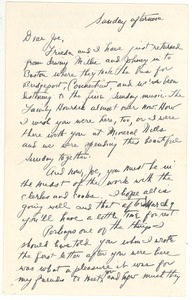 Sunday afternoon
Dear Joe,
Frieda and I have just returned
from driving Millie and Johnny in to
Canton where they take the bus for
Bridgeport, Connecticut, and we're
listening to the fine Sunday music. The
Family Hour is almost over now. How
I wish you were here, too, or I were
there with you at Mineral Wells
and we were spending this beautiful
Sunday together.
And now, Joe, you must be in
the midst of the work with the
clerks and cooks. I hope all is
going well and that after March 9
you'll have a little time for rest.
Perhaps one of the things I
should have told you when I wrote
the first letter after you were here
was what a pleasure it was for
my parents to meet you and how much they